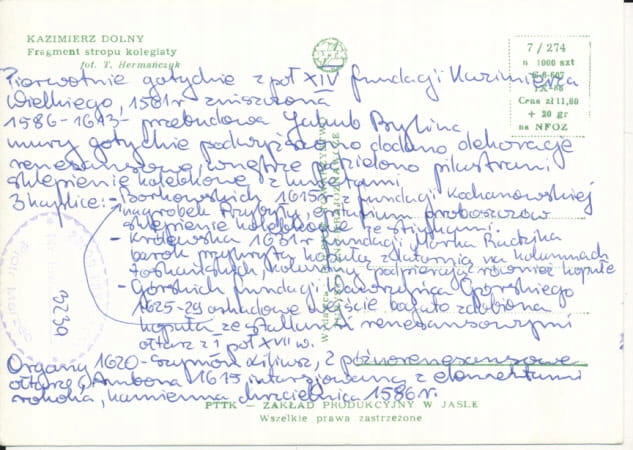 KAZIMIERZ DOLNY
Fragment stropu kolegiaty
fot. T. Hermańczyk
7 / 274
n 1000 szt
Cena zł 11,80
+ 20 gr
na NFOZ
Pierwotnie gotyckie z poł XIV fundacji Kazimierza
Wielkiego, 1561r zniszczona
1586-1613- przebudowa Jakub Balin
mury gotyckie podwyższono dodano dekoracje
renesansową, wnętrze podzielono pilastrami
sklepienie kolebkowe z lunetami
3 kaplice: - Borkowskich 1615r fundacji Kochanowskiej
nagrobek Przybyły, epitafium proboszczów
sklepienie kolebkowe ze stiukami.
- Królewska 1631r fundacji
barok przykryta kopułą z latarnią na kolumnach
toskańskich, kolumny podpierają również kopułę
- Górskich fundacji Górskiego
1625-29 wejście bogato zdobiona
kopuła ze stallami renesansowymi
ołtarz z I poł XVII w.
Organy 1620- Szymon Liliusz, 2 późnorenesansowe
ołtarze, Ambona 1615 intarsjowana z elementami
rokoka, kamienna chrzcielnica 1586r.
3239
PTTK — ZAKŁAD PRODUKCYJNY W JAŚLE
Wszelkie prawa zastrzeżone